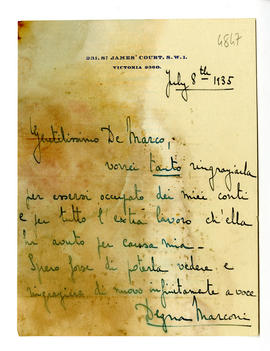 4847
231, ST JAMES' COURT, S.W.1.
VICTORIA 2360.
July 8th 1935
Gentilissimo De Marco,
vorrei tanto ringraziarla
per essersi occupato dei miei conti
e per tutto l'extra lavoro ch'ella
ha avuto per causa mia _
Spero forse di poterla vedere e
ringraziare di nuovo infinitamente a voce
Degna Marconi